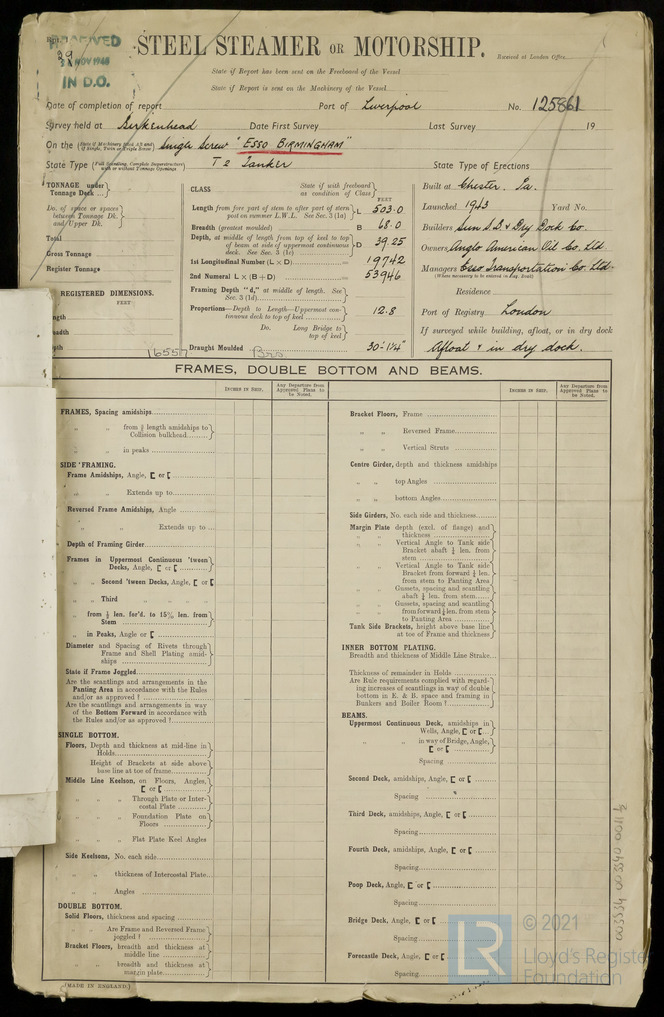 RECEIVED
NOV 1946
IN D.O.
STEEL STEAMER OR MOTORSHIP.
Received at London Office
State if Report has been sent on the Freeboard of the Vessel
State if Report is sent on the Machinery of the Vessel
Date of completion of report Port of Liverpool No. 125861
Survey held at Birkenhead Date First Survey Last Survey 19
On the Single Screw "ESSO BIRMINGHAM"
State Type (Full Scantling, Complete Superstructure with or without Tonnage Openings) T2 Tanker State Type of Erections
TONNAGE under Tonnage Deck
Do. of space or spaces between Tonnage Dk. and Upper Dk.
Total
Gross Tonnage
Register Tonnage
REGISTERED DIMENSIONS.
FEET
16557
CLASS State if with freeboard as condition of Class
FEET
Length from fore part of stem to after part of stern post on summer L.W.L. See Sec. 3 (1a) L 503.0
Breadth (greatest moulded) B 68.0
Depth, at middle of length from top of keel to top of beam at side of uppermost continuous deck. See Sec. 3 (1c) D 39.25
1st Longitudinal Number (L × D) 19742
2nd Numeral L × (B + D) 53946
Framing Depth "d," at middle of length. See Sec. 3 (1d)
Proportions—Depth to Length—Uppermost continuous deck to top of keel 12.8
Do. Long Bridge to top of keel
Draught Moulded 30'-1¼"
Built at Chester, Pa.
Launched 1943 Yard No.
Builders Sun S.B. & Dry Dock Co.
Owners Anglo American Oil Co. Ltd.
Managers Esso Transportation Co. Ltd.
(Where necessary to be entered in Reg. Book)
Residence
Port of Registry London
If surveyed while building, afloat, or in dry dock
Afloat & in dry dock.
FRAMES, DOUBLE BOTTOM AND BEAMS.
INCHES IN SHIP. Any Departure from Approved Plans to be Noted. INCHES IN SHIP. Any Departure from Approved Plans to be Noted.
FRAMES, Spacing amidships
„ „ from ½ length amidships to Collision bulkhead
„ „ in peaks
SIDE FRAMING.
Frame Amidships, Angle, [ or [
„ „ Extends up to
Reversed Frame Amidships, Angle
„ „ Extends up to
Depth of Framing Girder
Frames in Uppermost Continuous 'tween Decks, Angle, [ or [
„ „ Second 'tween Decks, Angle, [ or [
„ „ Third „ „ „ „
„ „ from ½ len. for'd. to 15% len. from Stem
„ „ in Peaks, Angle or [
Diameter and Spacing of Rivets through Frame and Shell Plating amidships
State if Frame Joggled
Are the scantlings and arrangements in the Panting Area in accordance with the Rules and/or as approved ?
Are the scantlings and arrangements in way of the Bottom Forward in accordance with the Rules and/or as approved ?
SINGLE BOTTOM.
Floors, Depth and thickness at mid-line in Holds
Height of Brackets at side above base line at toe of frame
Middle Line Keelson, on Floors, Angles, [ or [
„ „ Through Plate or Intercostal Plate
„ „ Foundation Plate on Floors
„ „ Flat Plate Keel Angles
Side Keelsons, No. each side
„ „ thickness of Intercostal Plate
„ „ Angles
DOUBLE BOTTOM.
Solid Floors, thickness and spacing
„ „ Are Frame and Reversed Frame joggled ?
Bracket Floors, breadth and thickness at middle line
„ „ breadth and thickness at margin plate
Bracket Floors, Frame
„ „ Reversed Frame
„ „ Vertical Struts
Centre Girder, depth and thickness amidships
„ „ top Angles
„ „ bottom Angles
Side Girders, No. each side and thickness
Margin Plate depth (excl. of flange) and thickness
„ „ Vertical Angle to Tank side Bracket abaft ¼ len. from stem
„ „ Vertical Angle to Tank side Bracket from forward ¼ len. from stem to Panting Area
„ „ Gussets, spacing and scantling abaft ¼ len. from stem
„ „ Gussets, spacing and scantling from forward ¼ len. from stem to Panting Area
Tank Side Brackets, height above base line at toe of Frame and thickness
INNER BOTTOM PLATING.
Breadth and thickness of Middle Line Strake
Thickness of remainder in Holds
Are Rule requirements complied with regarding increases of scantlings in way of double bottom in E. & B. space and framing in Bunkers and Boiler Room ?
BEAMS.
Uppermost Continuous Deck, amidships in Wells, Angle, [ or [
„ „ in way of Bridge, Angle, [ or [
Spacing
Second Deck, amidships, Angle, [ or [
Spacing
Third Deck, amidships, Angle, [ or [
Spacing
Fourth Deck, amidships, Angle, [ or [
Spacing
Poop Deck, Angle, [ or [
Spacing
Bridge Deck, Angle, [ or [
Spacing
Forecastle Deck, Angle, [ or [
Spacing
(MADE IN ENGLAND.)
LR © 2021
Lloyd's Register
Foundation